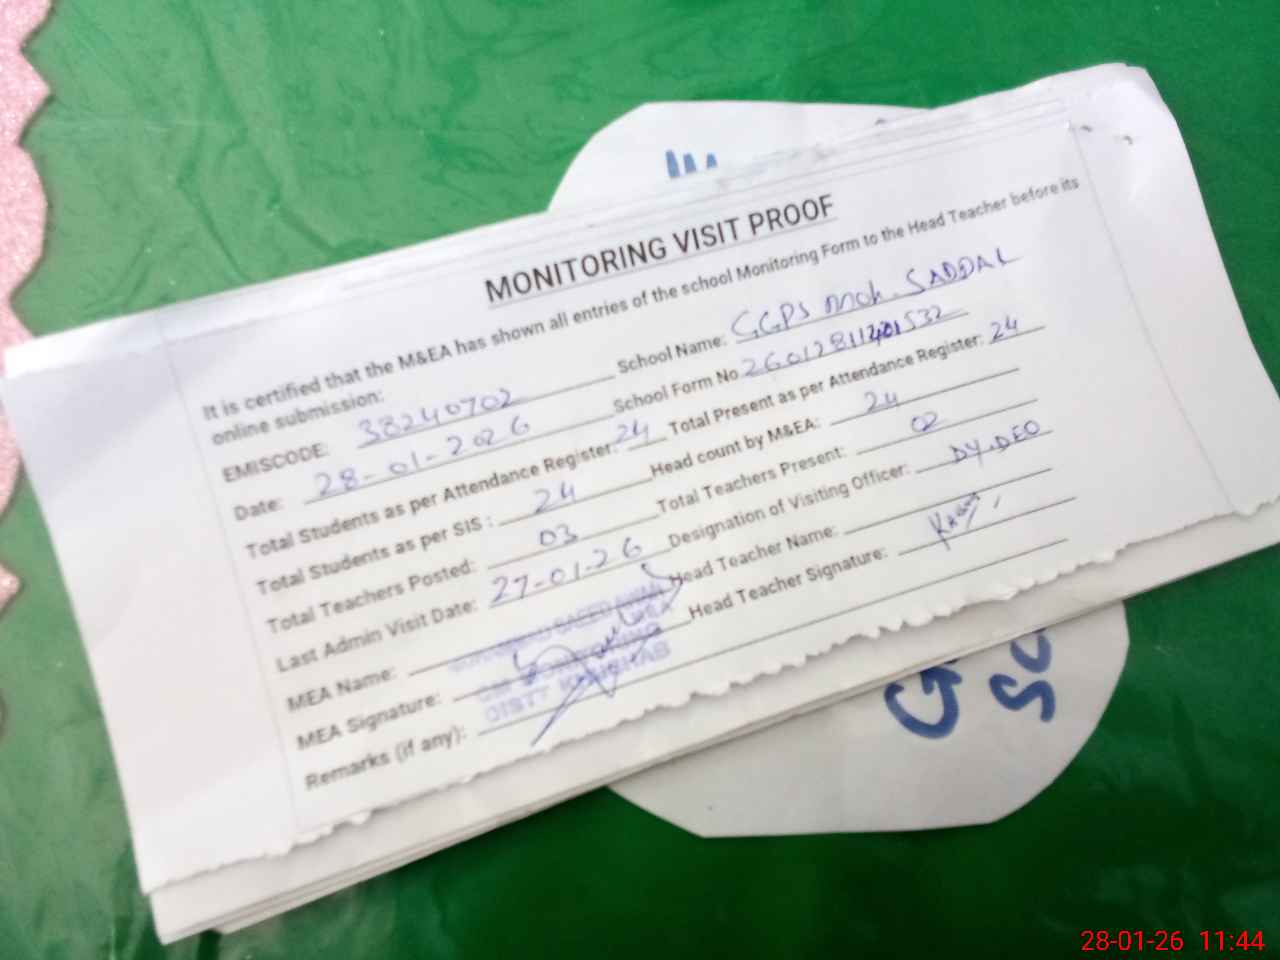 MONITORING VISIT PROOF
It is certified that the M&EA has shown all entries of the school Monitoring Form to the Head Teacher before its
online submission:
EMISCODE: 38240702 School Name: GGPS Moh. SADDAL
Date: 28-01-2026 School Form No 26012811401532
Total Students as per Attendance Register: 24 Total Present as per Attendance Register: 24
Total Students as per SIS: 24 Head count by M&EA: 24
Total Teachers Posted: 03 Total Teachers Present: 02
Last Admin Visit Date: 27-01-26 Designation of Visiting Officer: DY.DEO
MEA Name: Head Teacher Name:
MEA Signature: Head Teacher Signature:
DISTT KHUSHAB
Remarks (if any):
28-01-26 11:44